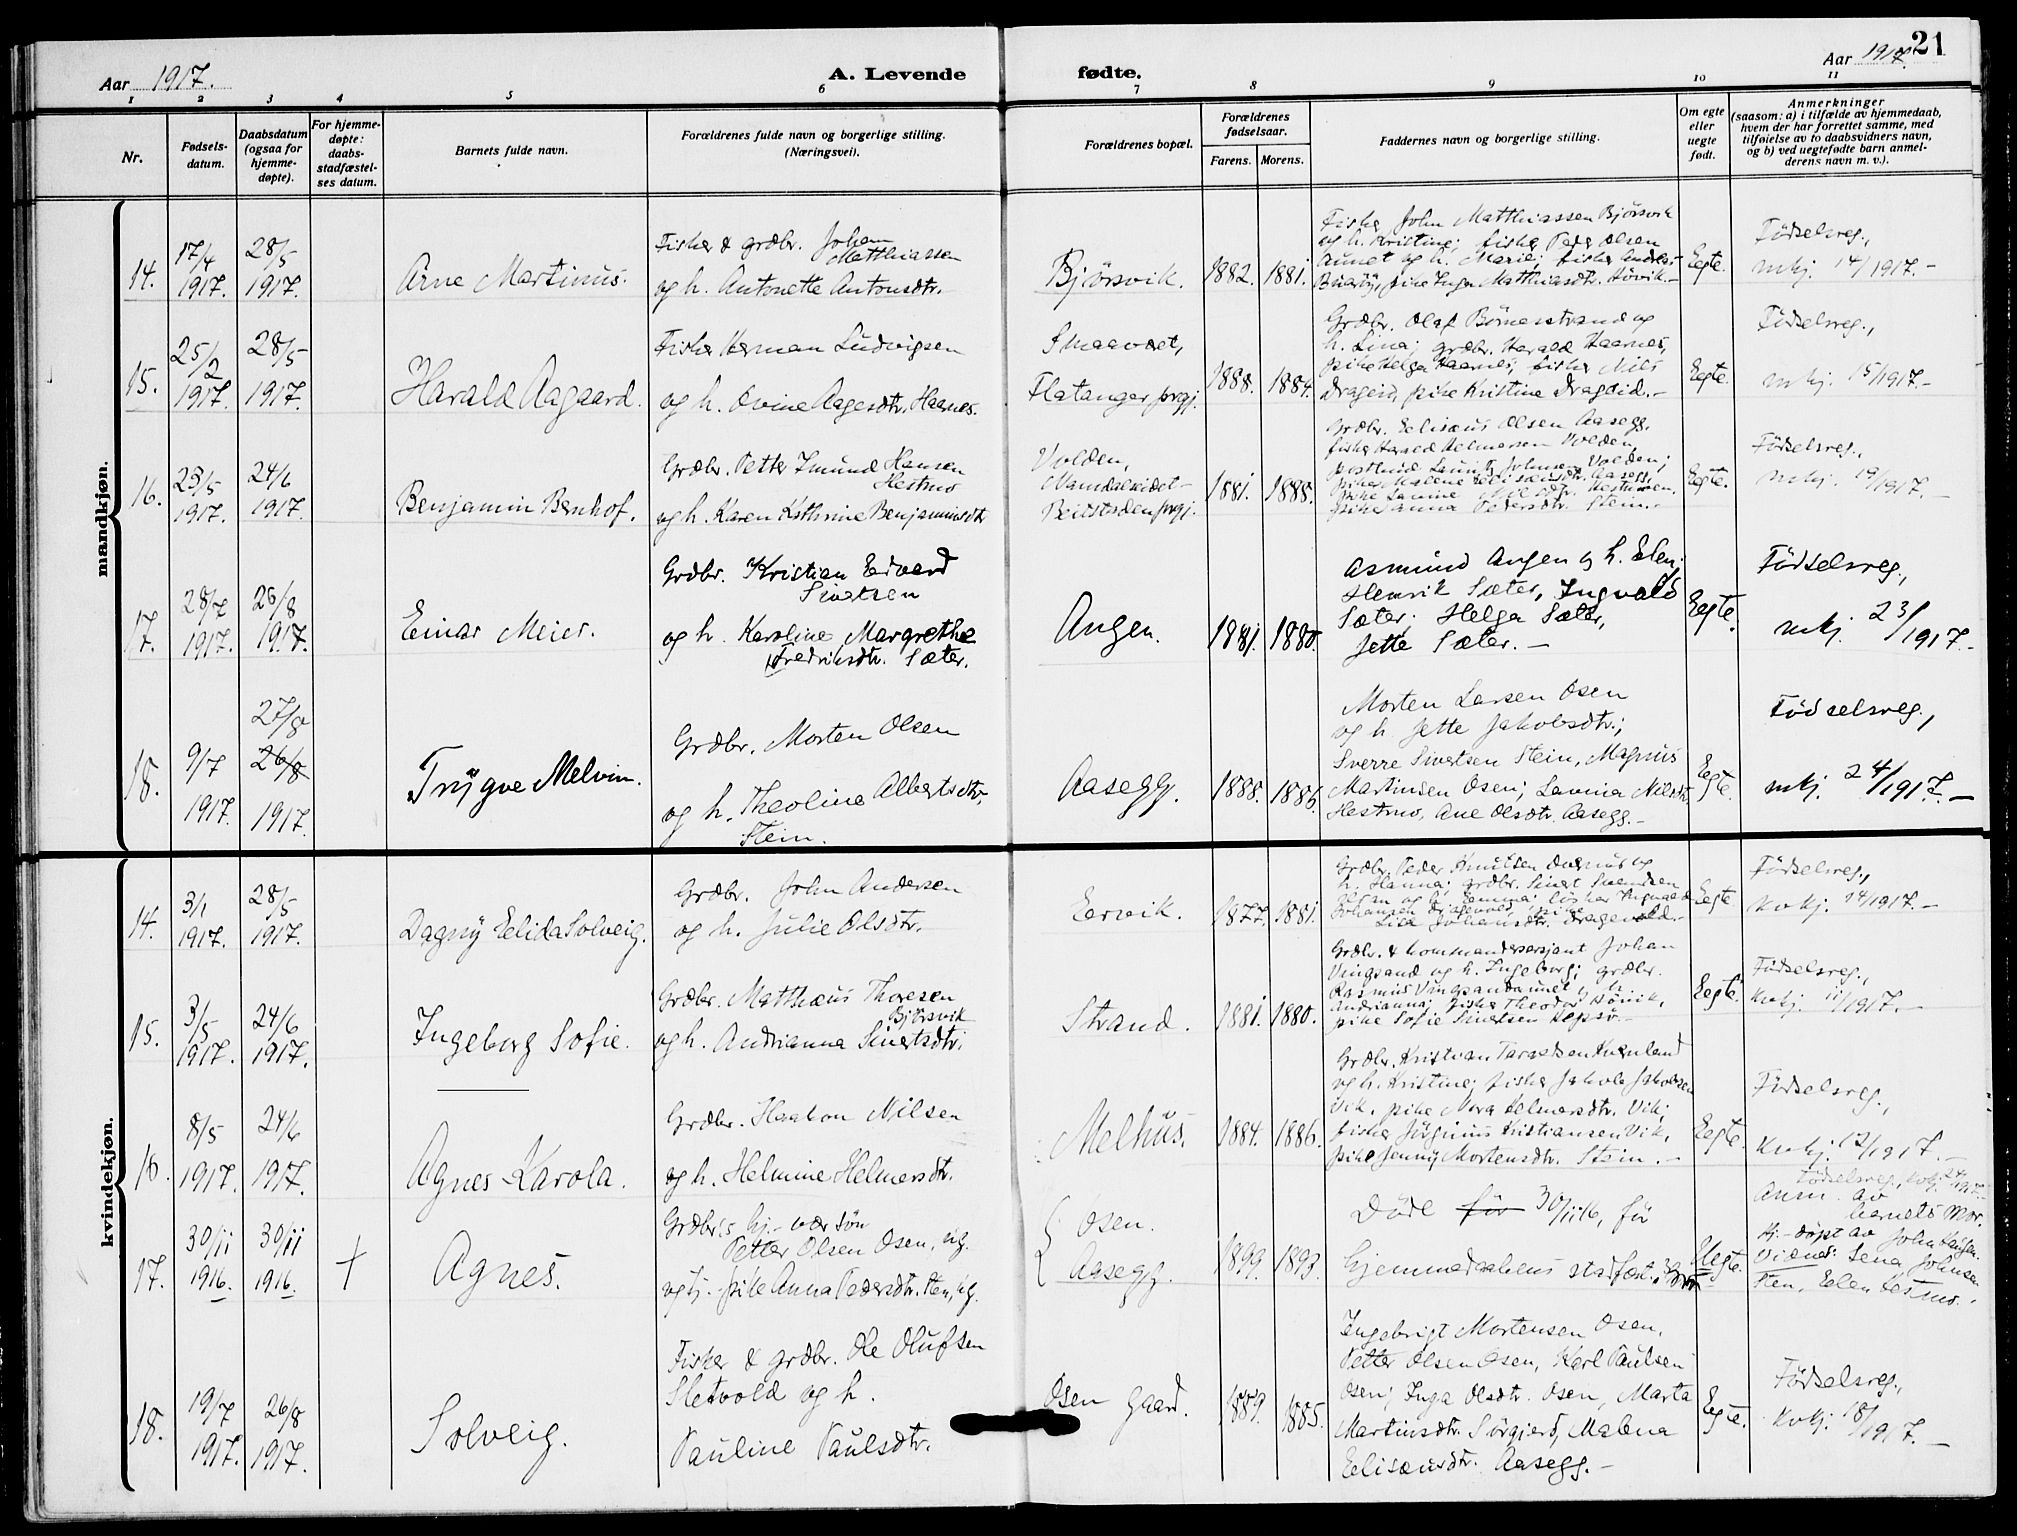 Aar 1917.
A. Levende fødte.
Aar 1917.
21
1 2 3 4 5 6 7 8 9 10 11
Nr.
Fødsels-
datum.
Daabsdatum
(ogsaa for
hjemme-
døpte).
For hjemme-
døpte:
daabs-
stadfæstel-
ses datum.
Barnets fulde navn.
Forældrenes fulde navn og borgerlige stilling.
(Næringsvei).
Forældrenes bopæl.
Forældrenes
fødselsaar.
Farens. Morens.
Faddernes navn og borgerlige stilling.
Om egte
eller
uegte
født.
Anmerkninger
(saasom: a) i tilfælde av hjemmedaab,
hvem der har forrettet samme, med
tilføielse av to daabsvidners navn,
og b) ved uegtefødte barn anmel-
derens navn m. v.).
mandkjøn.
14.
17/4
1917.
28/5
1917.
Arne Martinus.
Fisker & grdbr. Johan
Matthiassen
og h. Antonette Antonsdtr.
Bjørsvik.
1882. 1881.
Fisker John Matthiassen Bjørsvik
og h. Kristine; fisker Peder Olsen
Aunet og h. Marie; fisker
pike Inga Matthiasdtr. Høvik.-
Egte.
Fødselsreg.,
mkj. 14/1917.-
15.
25/2
1917.
28/5
1917.
Harald Aagaard.
Fisker Herman Ludvigsen
og h. Ovine Aagesdtr. Haarnes.
Smaavæt,
Flatanger prgj.
1888. 1884.
Grdbr. Olaf Børnesstrand og
h. Lina; grdbr. Harald Haarnes,
pike Helga Haarnes; fisker Nils
Drageid, pike Kristine Drageid.-
Egte.
Fødselsreg.,
mkj. 15/1917.-
16.
25/5
1917.
24/6
1917.
Benjamin Bernhof.
Grdbr. Petter Imund Hansen
Hestmo
og h. Karen Kathrine Benjaminsdtr
Volden,
Namdalseidet-
Beitstaden prgj.
1881. 1888.
Grdbr. Elisæus Olsen Aasegg.
fisker Harald Helmersen Volden,
Johnsen Volden;
pike Malene Elisæusdtr. Aasegg,
pike Lavine Nilsdtr. Hestmoen.
pike Anna Pedersdtr. Stein.-
Egte.
Fødselsreg.,
mkj. 19/1917.-
17.
28/7
1917.
26/8
1917.
Einar Meier.
Grdbr. Kristian Edvard
Sivertsen
og h. Karoline Margrethe
Fredriksdtr. Sæter.
Angen.
1881. 1880.
Asmund Angen og h. Elen;
Henrik Sæter, Ingvald
Sæter; Helga Sæter,
Jette Sæter.-
Egte.
Fødselsreg.,
mkj. 23/1917.-
18.
9/7
1917.
27/8
26/8
1917.
Trygve Melvin.
Grdbr. Morten Olsen
og h. Theoline Albertsdtr.
Stein.
Aasegg.
1888. 1886.
Morten Larsen Osen
og h. Jette Jakobsdtr.;
Sverre Sivertsen Stein, Magnus
Martinsen Osen; Lavina Nilsdtr
Hestmo, Ane Olsdtr. Aasegg.-
Egte.
Fødselsreg.,
mkj. 24/1917.-
kvindekjøn.
14.
3/1
1917.
28/5
1917.
Dagny Elida Solveig.
Grdbr. John Andersen
og h. Julie Olsdtr.
Eervik.
1877. 1881.
Grdbr. Peder Knutsen og
h. Hanna; grdbr. Sivert Svendsen
og h. Emma; Ingvald
Johansen Dragevold, pike
Lisa Johansdtr. Dragevold.-
Egte
Fødselsreg.,
kvkj. 14/1917.-
15.
3/5
1917.
24/6
1917.
Ingeborg Sofie.
Grdbr. Matthæus Thoresen
Bjørsvik
og h. Andrianna Sivertsdtr.
Strand.
1881. 1880.
Grdbr. & kommandersersjant Johan
Vingsand og h. Ingeborg; grdbr.
Rasmus Vingsandaunet og h.
Andrianna; fisker Theodor Høvik,
pike Sofie Sivertsen Hepsø.-
Egte.
Fødselsreg.,
kvkj. 11/1917.-
16.
8/5
1917.
24/6
1917.
Agnes Karola.
Grdbr. Haakon Nilsen
og h. Helmine Helmersdtr.
Melhus.
1884. 1886.
Grdbr. Kristian Kvernland
og h. Kristine; fisker Jakob Jakobsen
Vik, pike Nora Helmersdtr. Vik;
fisker Jørginus Kristiansen Vik,
pike Jenny Mortensdtr. Stein.-
Egte.
Fødselsreg.,
kvkj. 12/1917.-
17.
30/11
1916.
30/11
1916.
+
Agnes.
Grdbr's hj.-vær. søn
Petter Olsen Osen, ug.
og tj.-pike Anna Pedersdtr. Sten, ug.
Osen.
Aasegg.
1899. 1893.
Døde før 30/11 16, før
hjemmedaabens stadfæst.
Uegte.
Fødselsreg., kvkj. 24/1917.-
Anm. av
barnets mor.
Hj.-døpt av John
Vidner: Lena Johnsen
Sten, Elen Hestmo.
18.
19/7
1917.
26/8
1917.
Solveig.
Fisker & grdbr. Ole Olufsen
Sletvold og h.
Pauline Paulsdtr.
Osen gaard.
1889. 1885.
Ingebrigt Mortensen Osen,
Petter Olsen Osen, Karl Paulsen
Osen; Inga Olsdtr. Osen, Marta
Martinsdtr. Sørgjerd, Malena
Elisæusdtr. Aasegg.-
Egte.
Fødselsreg.,
kvkj. 18/1917.-